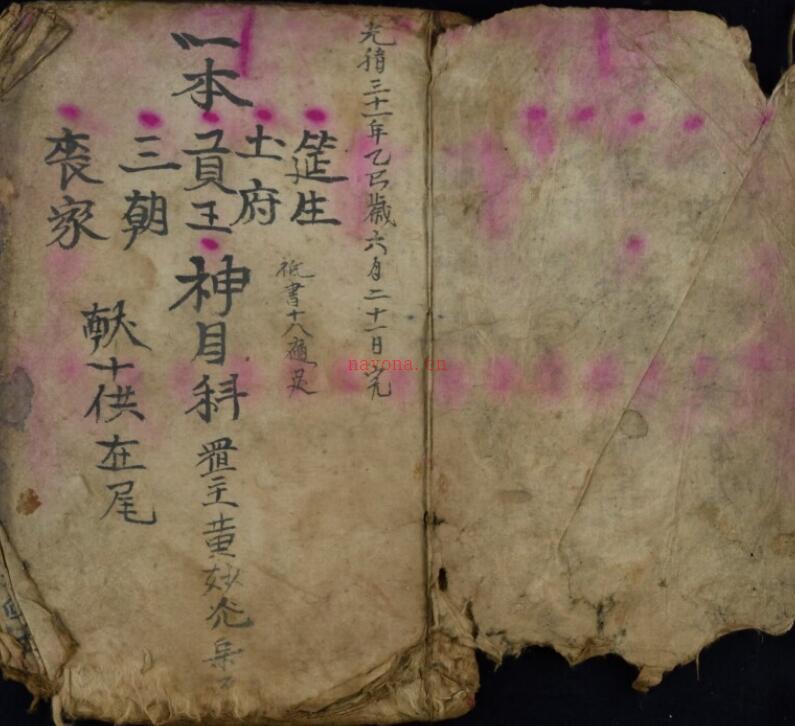 光緒三十一年乙巳歲六月二十一日完
筵生
書十八
土府
一本貢王神目科 置主黄妙光
三朝
献十供在尾
喪家
nayona.cn